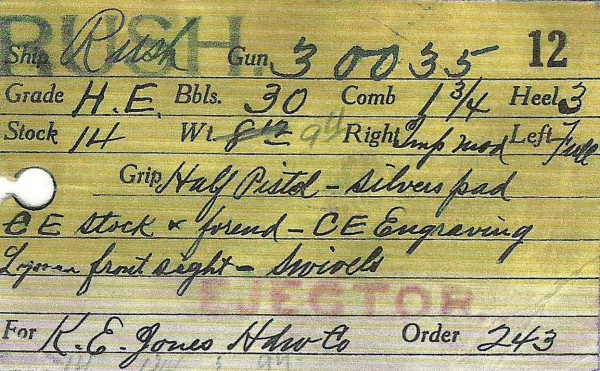 RUSH.
Ship Rush Gun 3 0035 12
Grade H.E. Bbls. 30 Comb 1 3/4 Heel 3
Stock 14 Wt 8 12 9 4 Right Imp mod Left Full
Grip Half Pistol - Silvers pad
CE stock & forend - CE Engraving
Lyman front sight - Swivels
EJECTOR.
For K. E. Jones Hdw Co Order 243